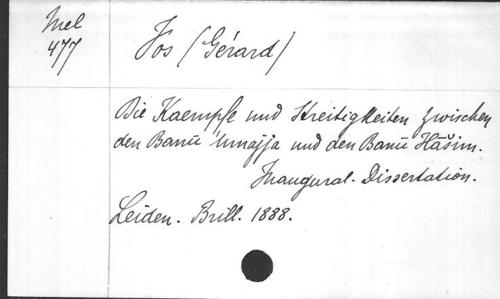 Mel
477
Vos (Gérard)
Die Kaempfe und Streitigkeiten zwischen
den Banū 'Umajja und den Banū Hāšim.
Inaugural-Dissertation.
Leiden. Brill. 1888.